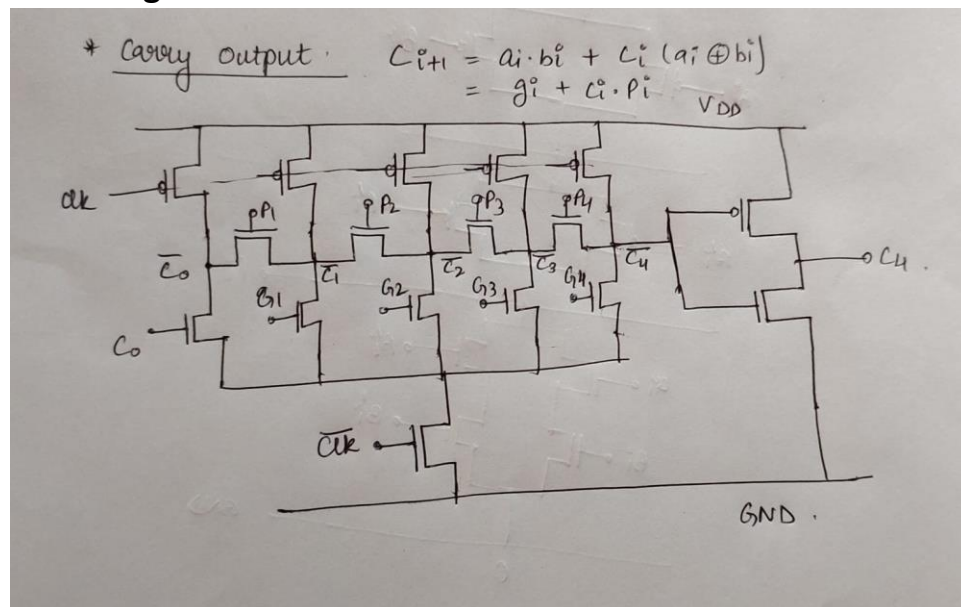 * Carry output. Cᵢ₊₁ = aᵢ·bᵢ + Cᵢ (aᵢ ⊕ bᵢ)
= gᵢ + cᵢ·Pᵢ
VDD
clk
P1 P2 P3 P4
C̅₀ C̅₁ C̅₂ C̅₃ C̅₄ C4.
G1 G2 G3 G4
C₀
c̅l̅k̅
GND.